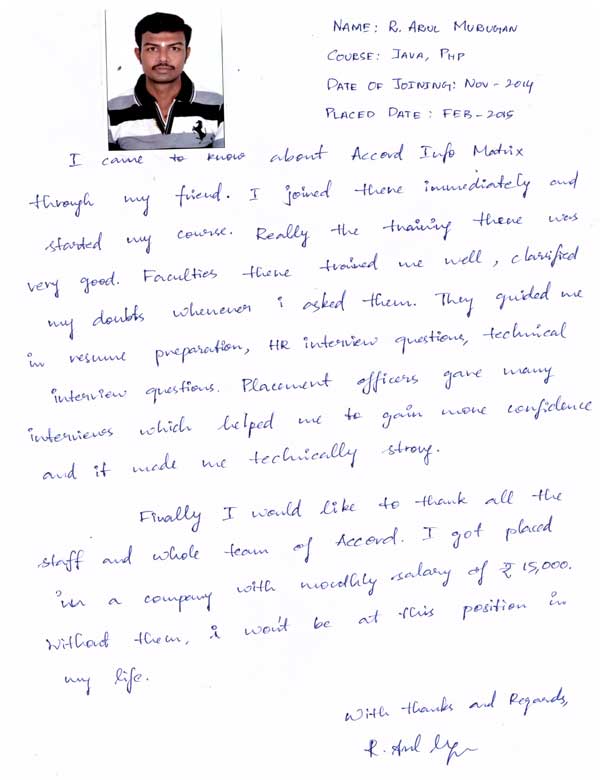 NAME: R. ARUL MURUGAN
COURSE: JAVA, PHP
DATE OF JOINING: NOV - 2014
PLACED DATE : FEB - 2015
I came to know about Accord Info Matrix
through my friend. I joined there immediately and
started my course. Really the training there was
very good. Faculties there trained me well, clarified
my doubts whenever i asked them. They guided me
in resume preparation, HR interview questions, technical
interview questions. Placement officers gave many
interviews which helped me to gain more confidence
and it made me technically strong.
Finally I would like to thank all the
staff and whole team of Accord. I got placed
in a company with monthly salary of ₹ 15,000.
Without them, i won't be at this position in
my life.
With thanks and Regards,
R. Arul